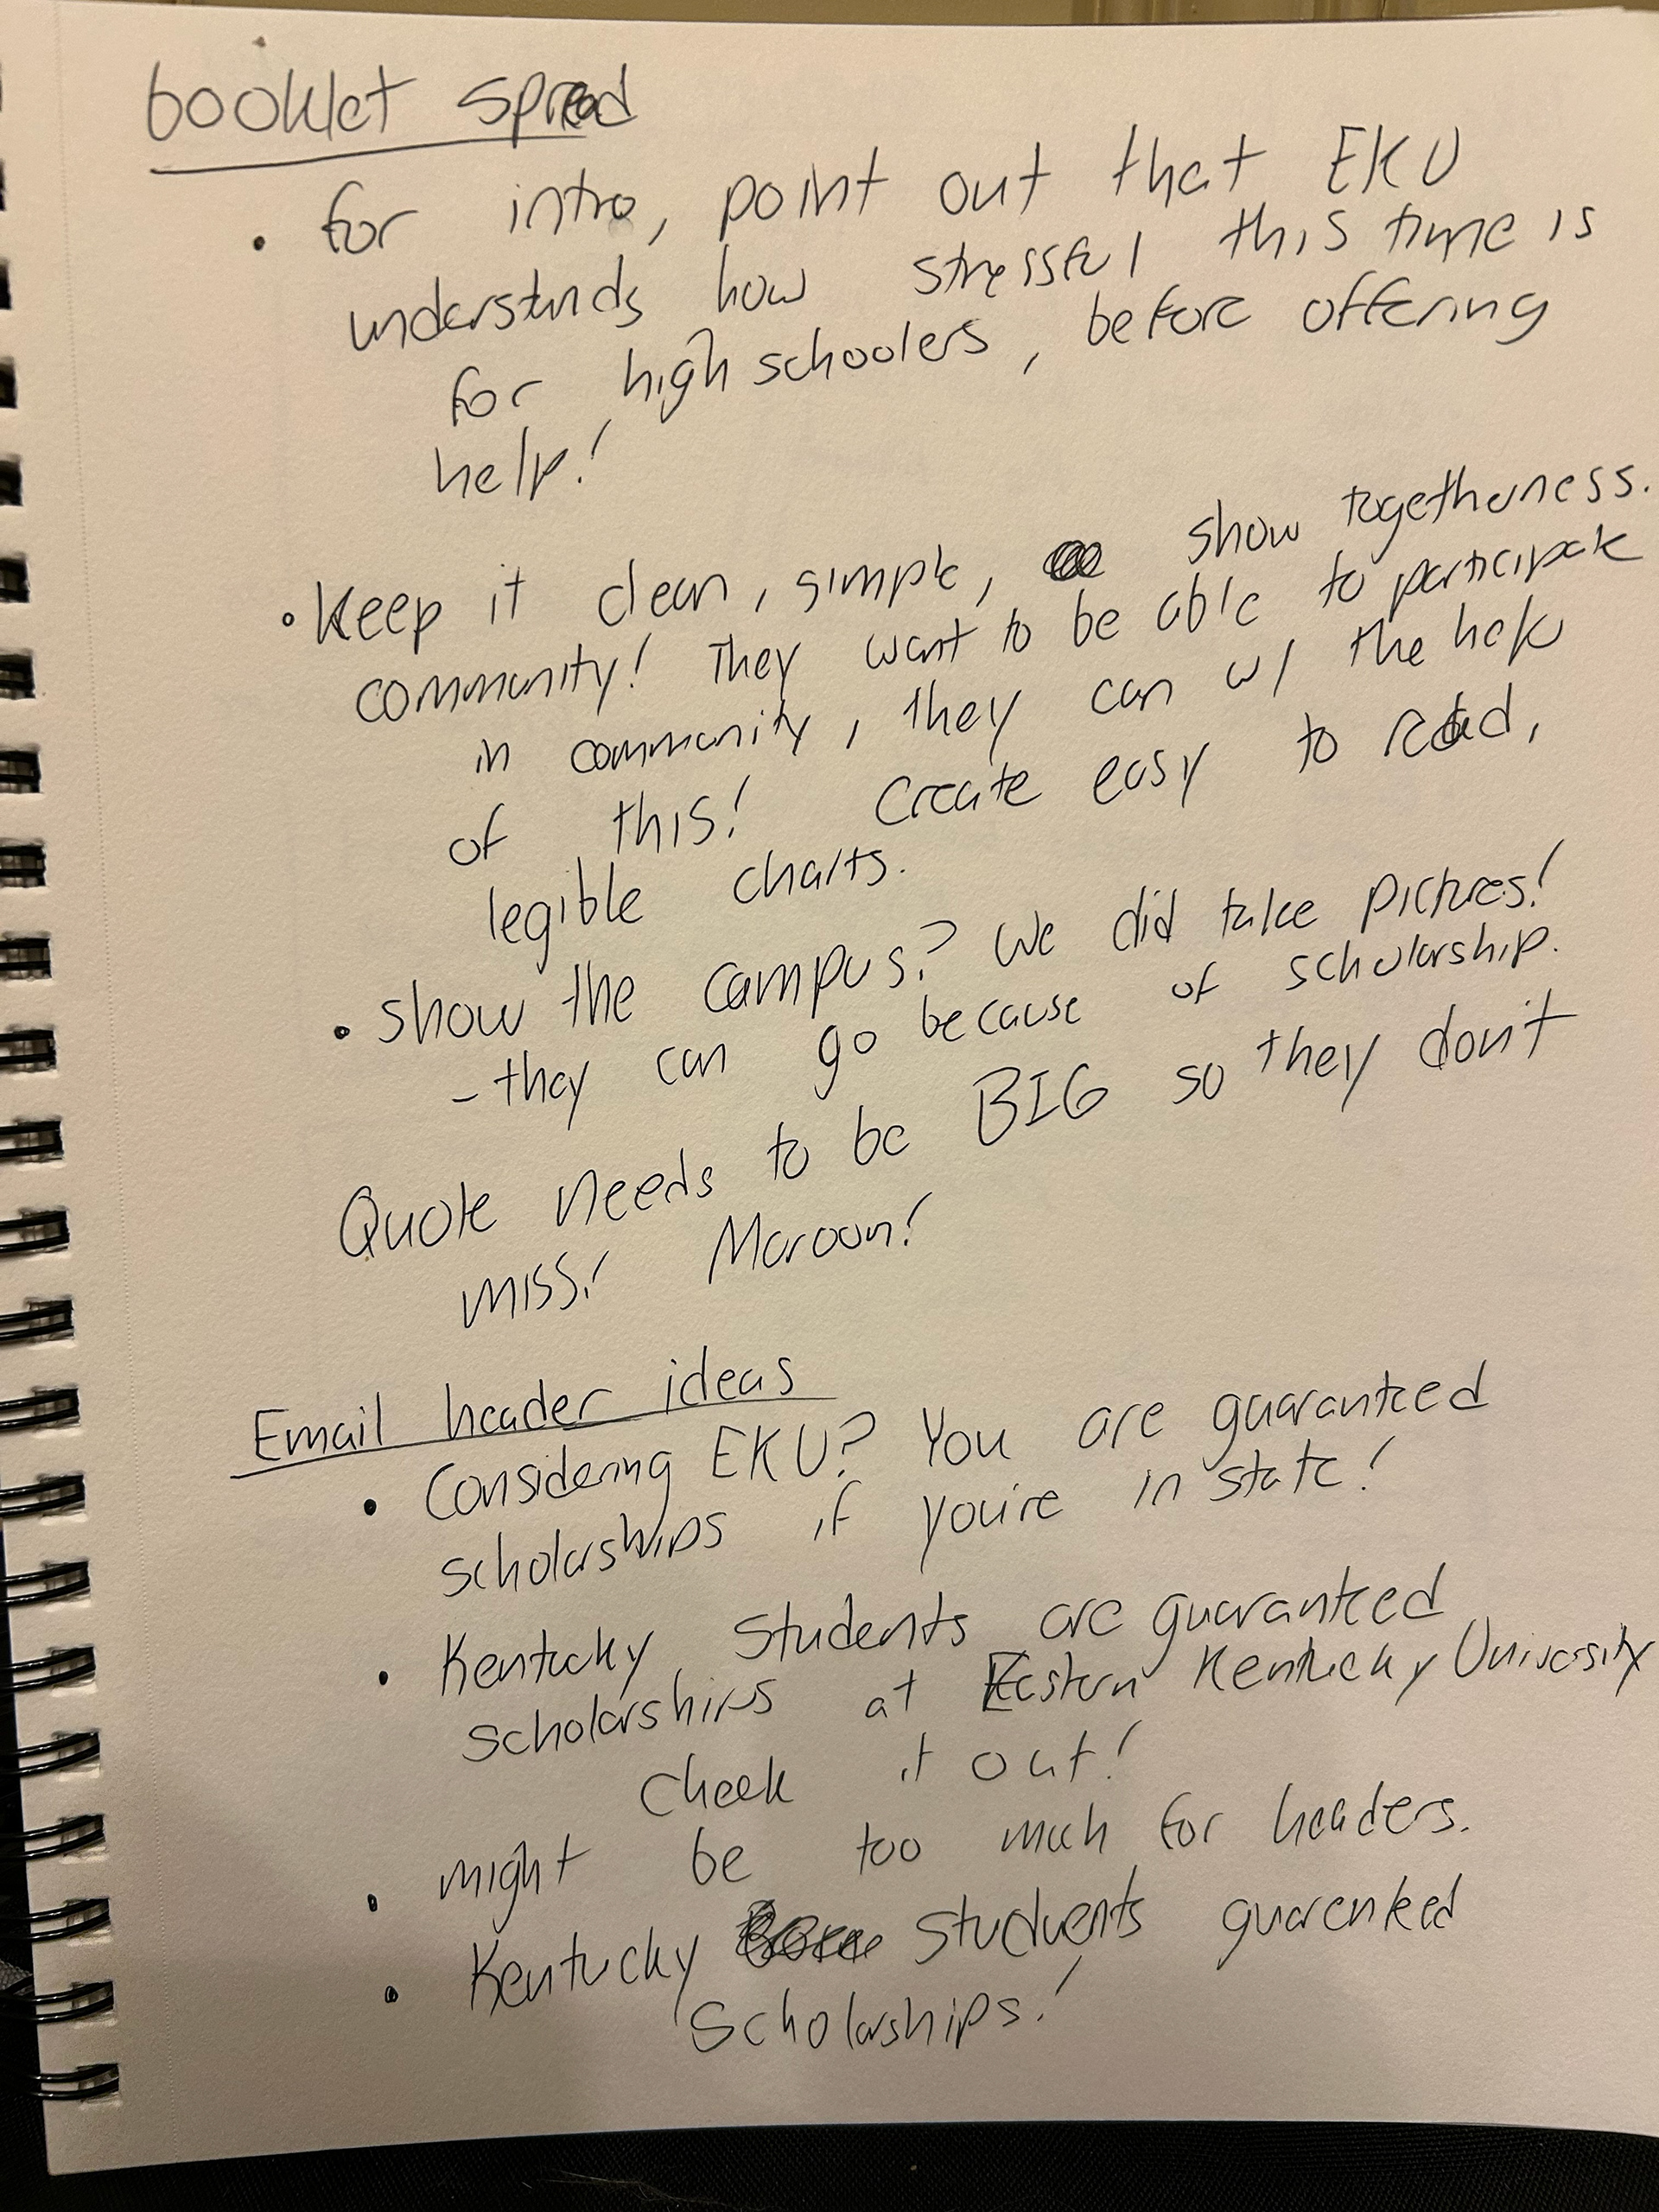 booklet spread
• for intro, point out that EKU
understands how stressful this time is
for high schoolers, before offering
help!
• Keep it clean, simple, show togetherness.
community! They want to be able to participate
in community, they can w/ the help
of this! Create easy to read,
legible charts.
• show the campus? We did take pictures!
- they can go because of scholarship.
Quote needs to be BIG so they don't
miss! Maroon!
Email header ideas
• Considering EKU? You are guaranteed
scholarships if you're in state!
• Kentucky students are guaranteed
scholarships at Eastern Kentucky University
Check it out!
• might be too much for headers.
• Kentucky students guarenteed
Scholarships!